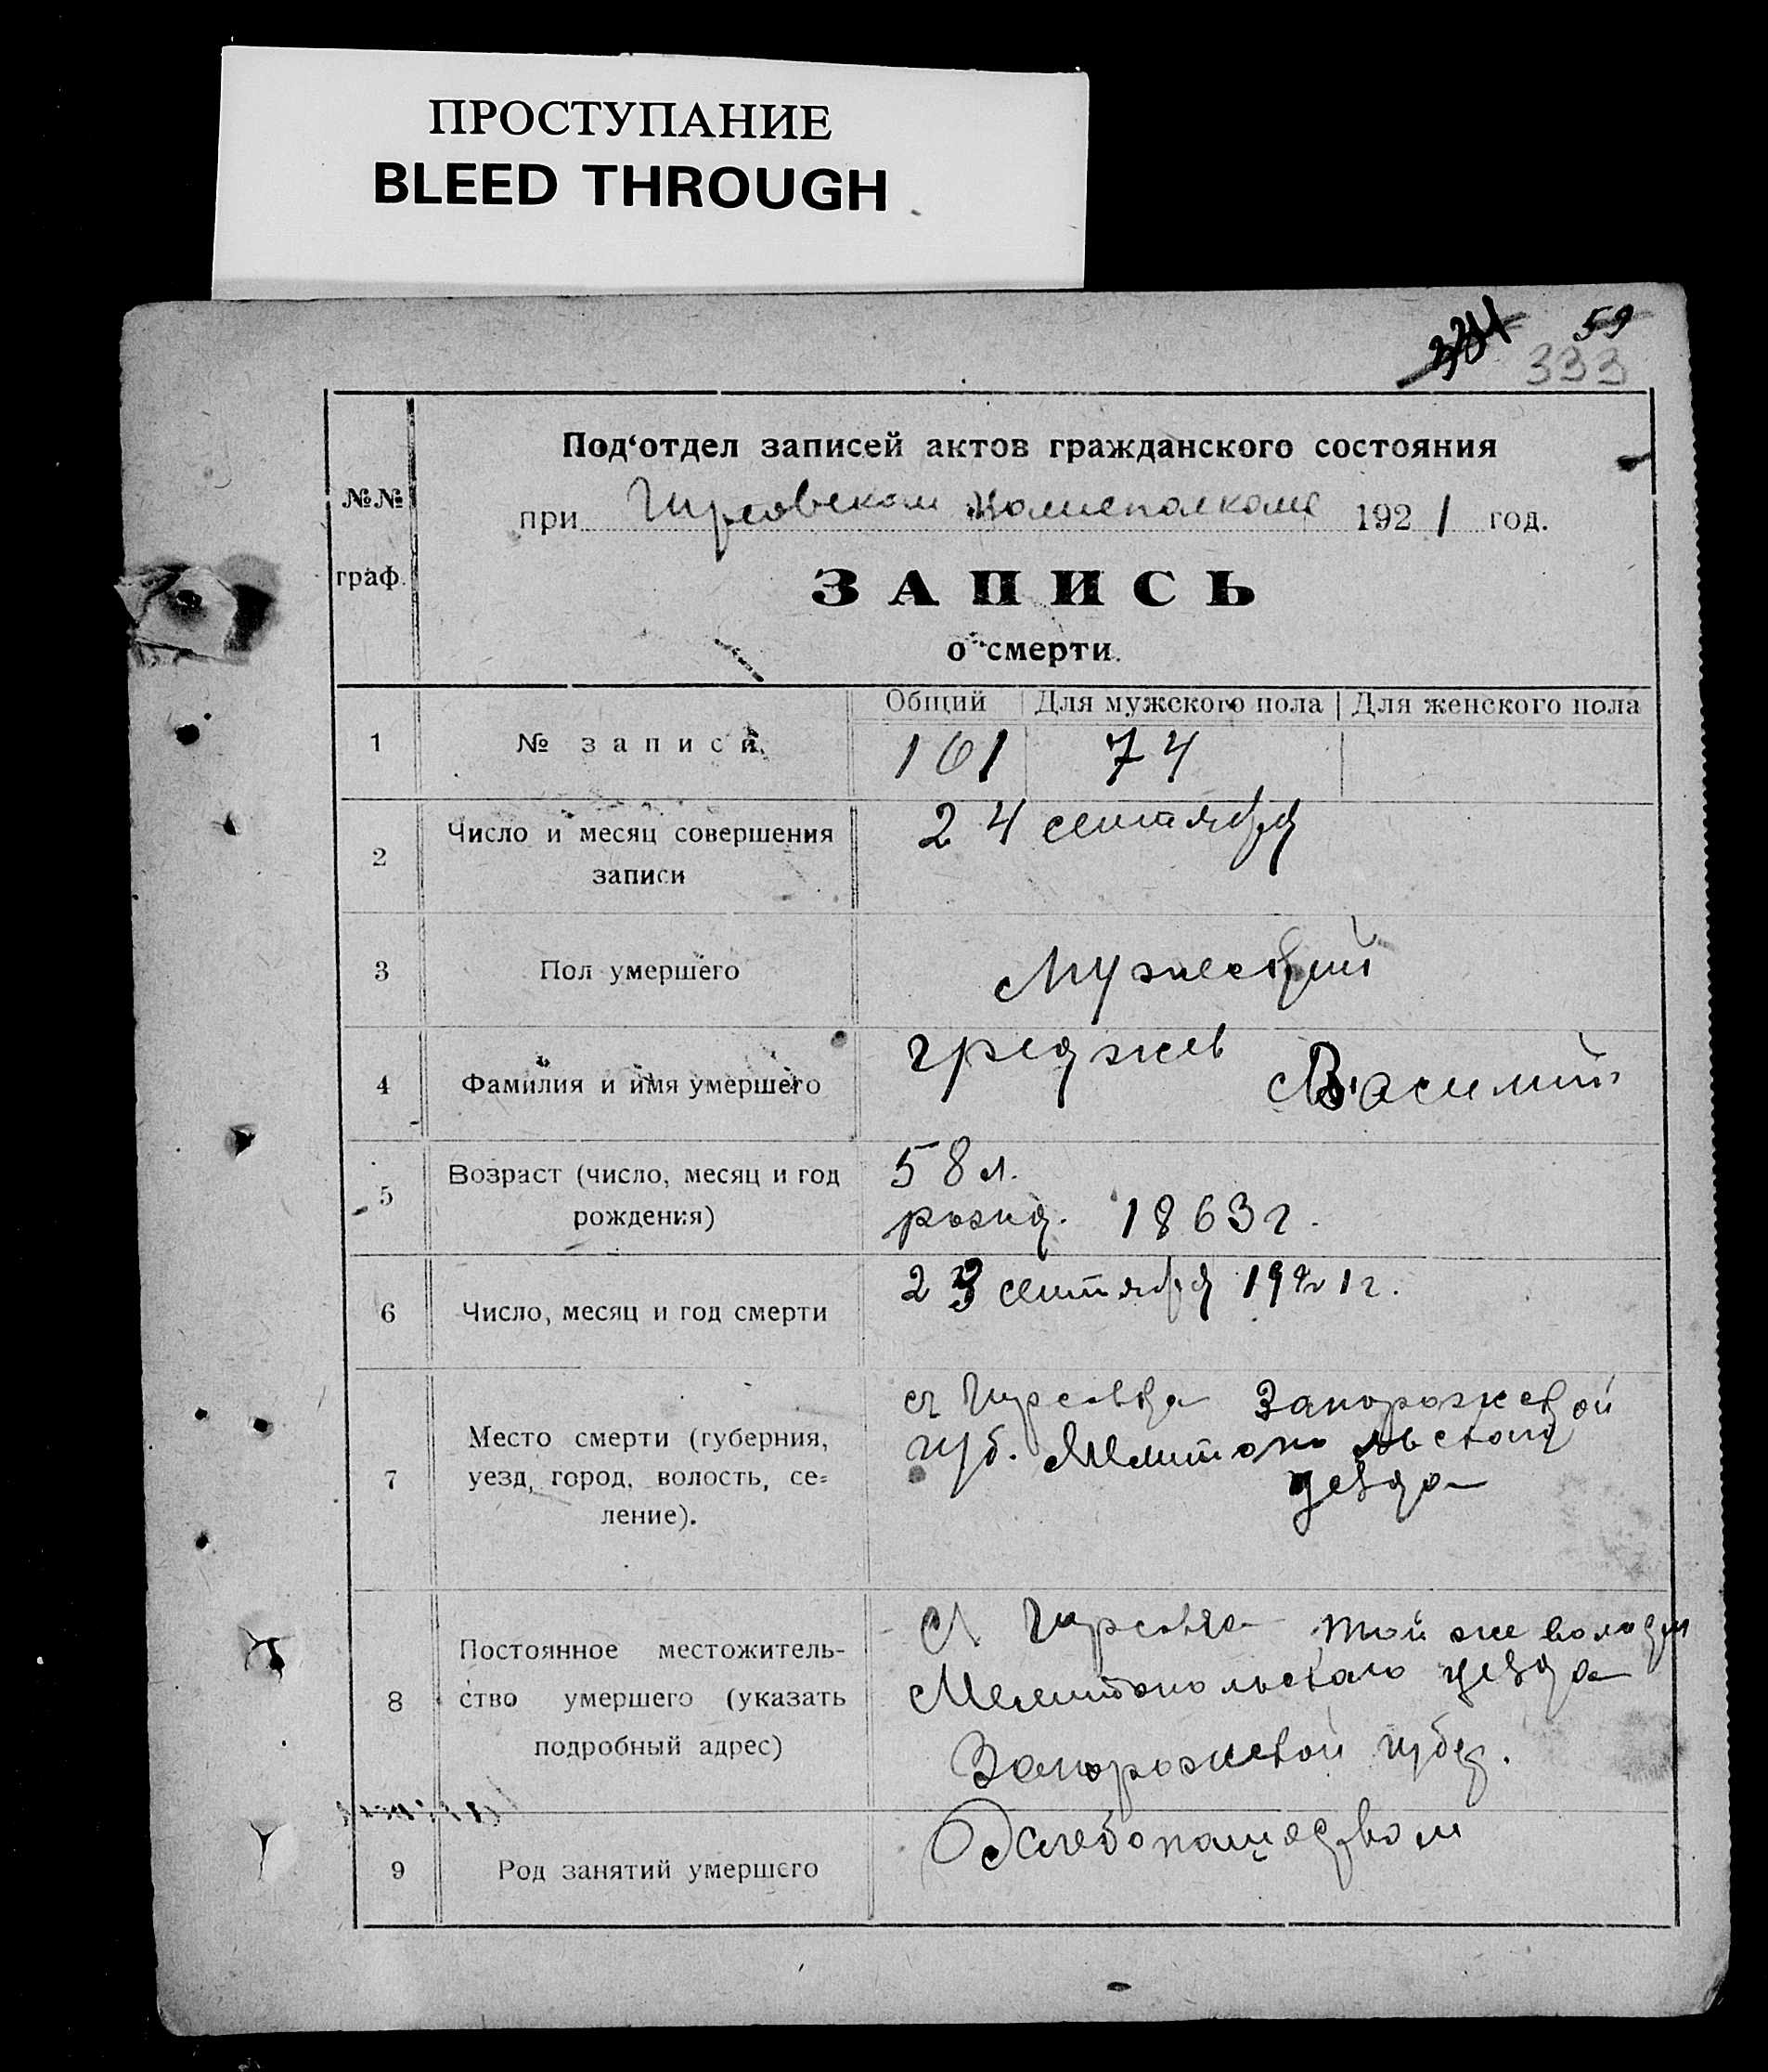 ПРОСТУПАНИЕ
BLEED THROUGH
59
333
№№ граф.
Под‘отдел записей актов гражданского состояния
при Гирсовском волисполкоме 1921 год.
ЗАПИСЬ
о смерти.
Общий Для мужского пола Для женского пола
1 № записи. 101 74
2 Число и месяц совершения записи
24 сентября
3 Пол умершего Мужеский
4 Фамилия и имя умершего
Василий
5 Возраст (число, месяц и год рождения)
58 л.
рожд. 1863 г.
6 Число, месяц и год смерти
23 сентября 1921 г.
7 Место смерти (губерния, уезд, город, волость, се= ление).
с Гирсовка Запорожской
губ. Мелитопольского
уезда
8 Постоянное местожитель- ство умершего (указать подробный адрес)
С. Гирсовка той же волости
Мелитопольского уезда
Запорожской губер.
9 Род занятий умершего
Хлебопашеством